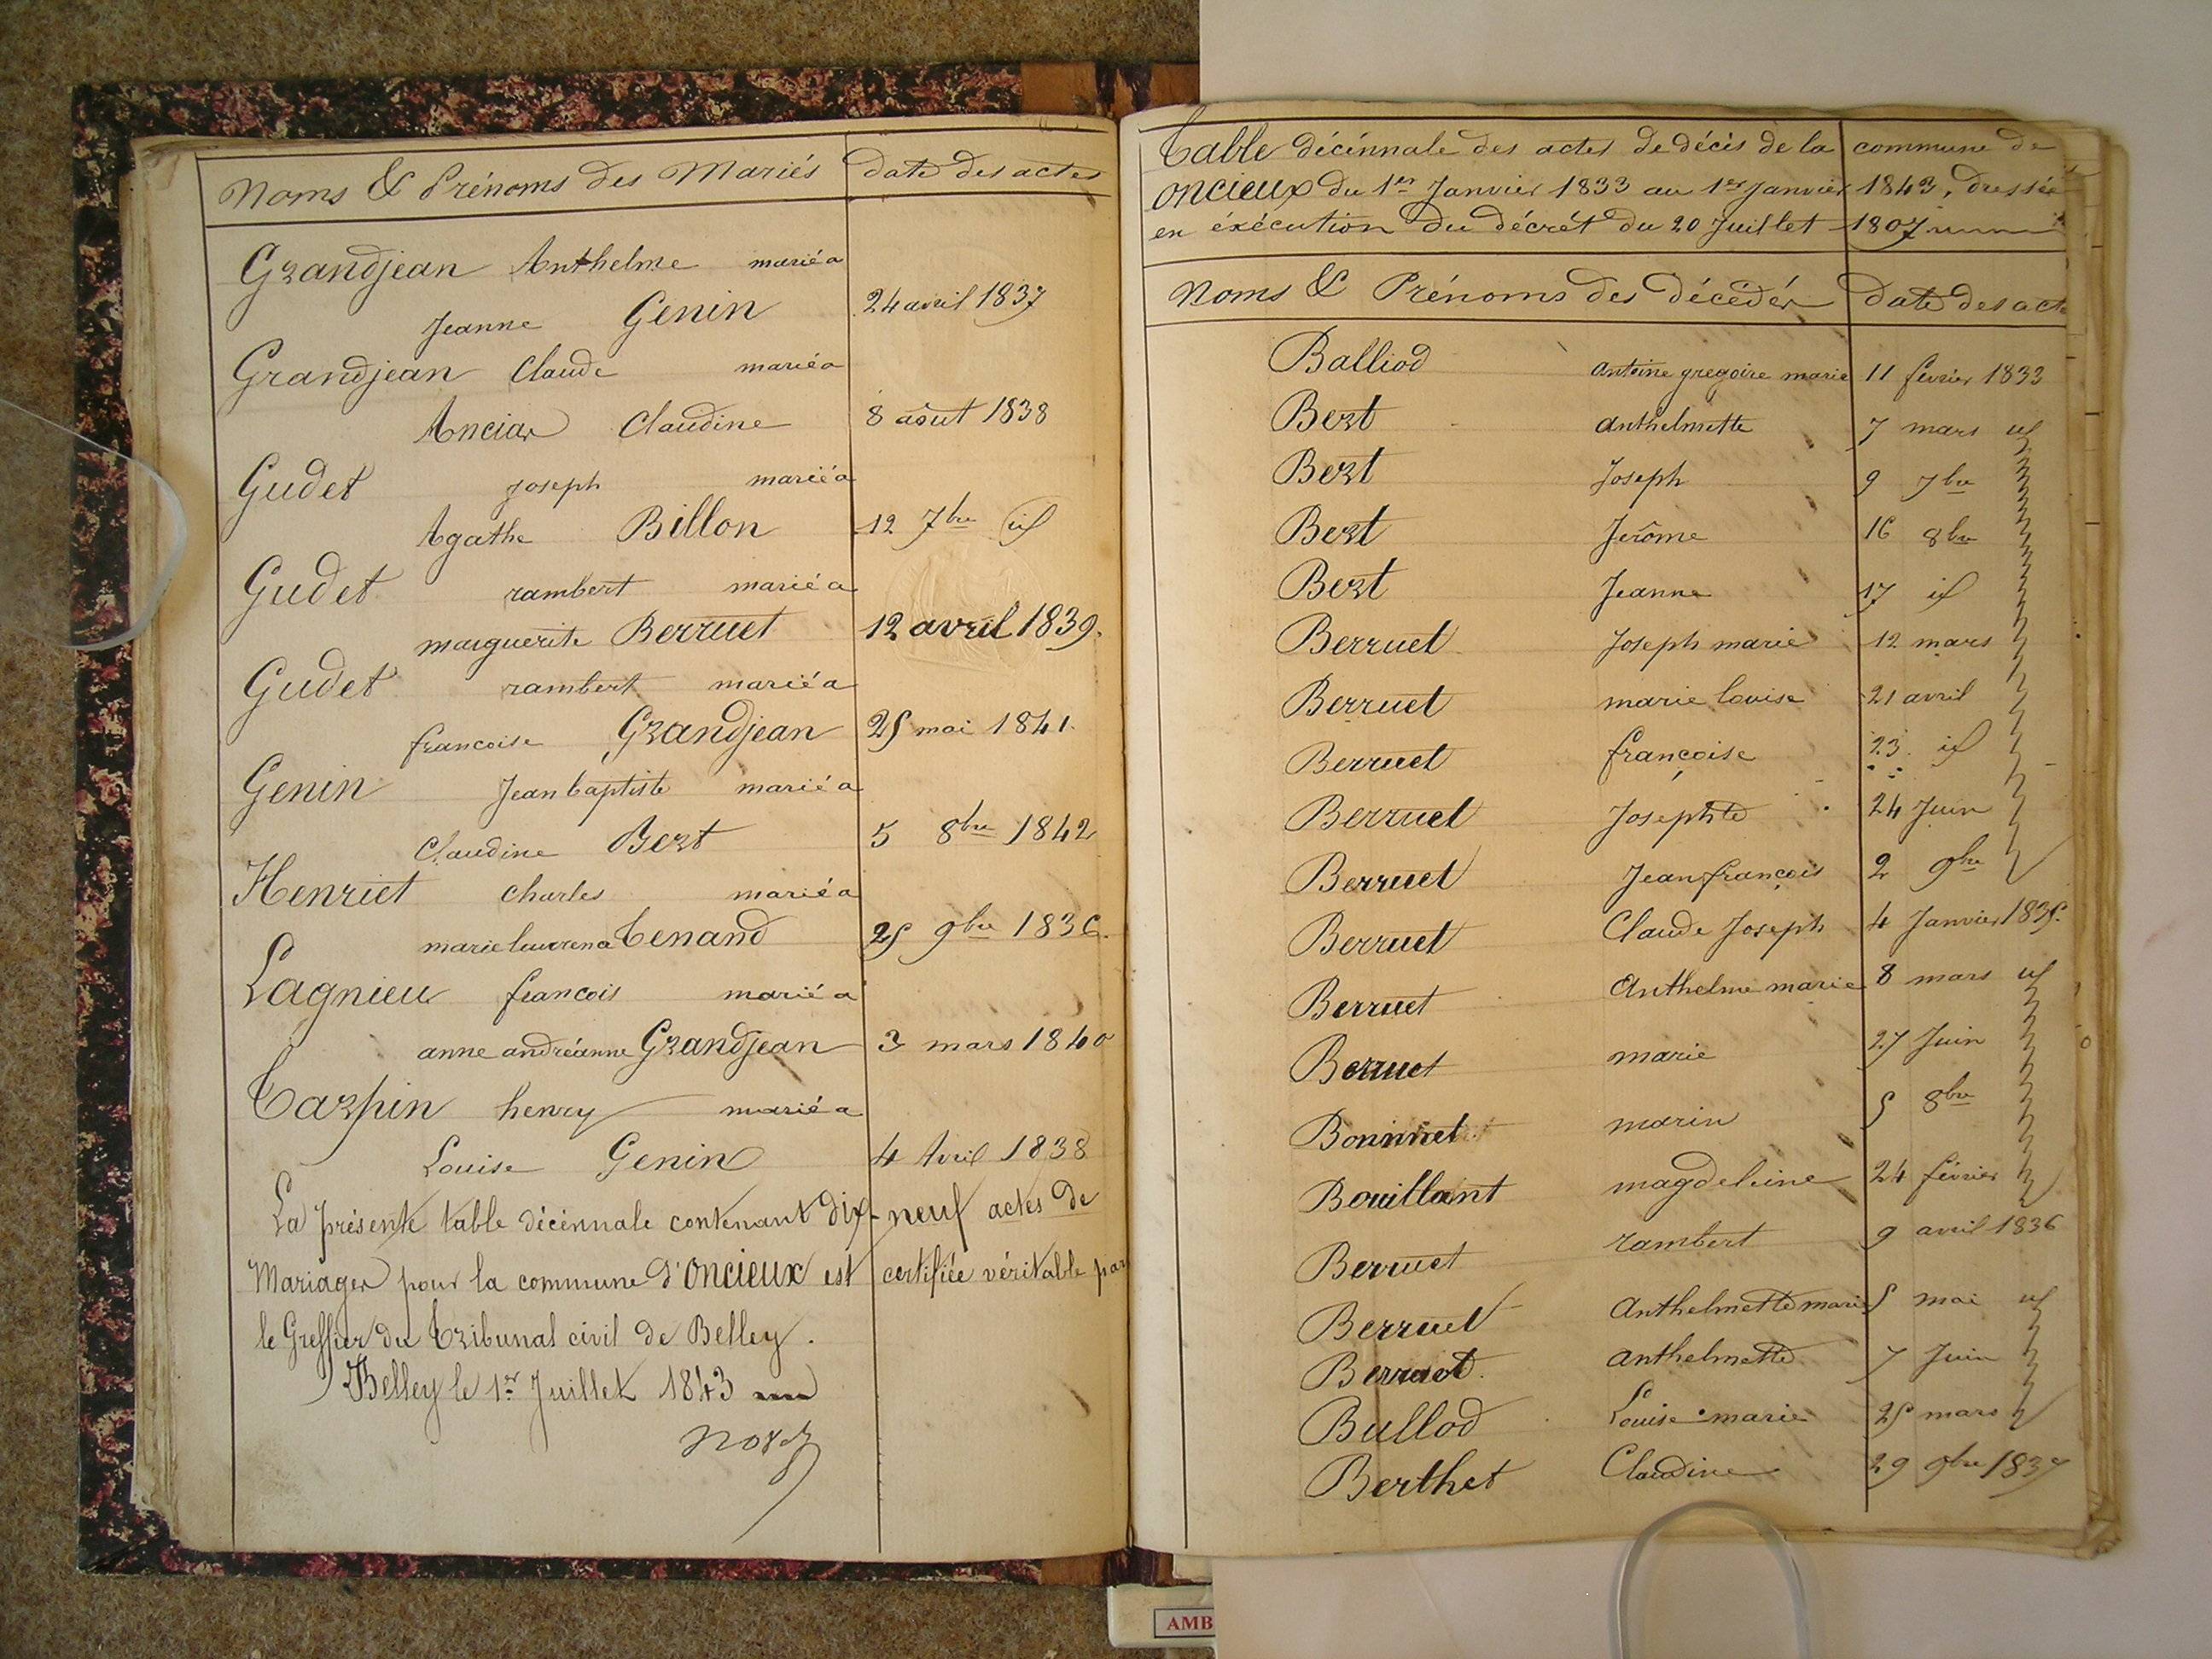 Noms & Prénoms des Mariés date des actes
Grandjean Anthelme marié a
Jeanne Genin 24 avril 1837
Grandjean Claude marié a
Anciar Claudine 8 août 1838
Gudet joseph marié a
Agathe Billon 12 7bre id
Gudet rambert marié a
marguerite Berruet 12 avril 1839.
Gudet rambert marié a
francoise Grandjean 25 mai 1841.
Genin Jean baptiste marié a
Claudine Bert 5 8bre 1842
Henriet charles marié a
marie Tenand 25 9bre 1836.
Lagnieu francois marié a
anne andréanne Grandjean 3 mars 1840
Tarpin henry marié a
Louise Genin 4 Avril 1838
La présente table décennale contenant dix-neuf actes de
Mariages pour la commune d'oncieux est certifiée véritable par
le Greffier du Tribunal civil de Belley.
Belley le 1er Juillet 1843
Table décénnale des actes de décès de la commune de
oncieux du 1er Janvier 1833 au 1er Janvier 1843, dressée
en éxécution du décrèt du 20 Juillet 1807
Noms & Prénoms des décédés date des acte
Balliod antoine gregoire marie 11 février 1833
Bert anthelmette 7 mars id
Bert Joseph 9 7bre
Bert Jerôme 16 8bre
Bert Jeanne 17 id
Berruet Joseph marie 12 mars
Berruet marie louise 21 avril
Berruet françoise 23. id
Berruet Josephte 24 Juin
Berruet Jean françois 2 9bre
Berruet Claude Joseph 4 Janvier 1835.
Berruet Anthelme marie 8 mars id
Berruet marie 27 Juin
Bonnnet marin 5 8bre
Bouillant magdeleine 24 février
Berruet rambert 9 avril 1836
Berruet Anthelmette marie 5 mai id
Berruet. anthelmette 7 Juin
Bullod Louise marie 25 mars
Berthet Claudine 29 9bre 1837
AMB